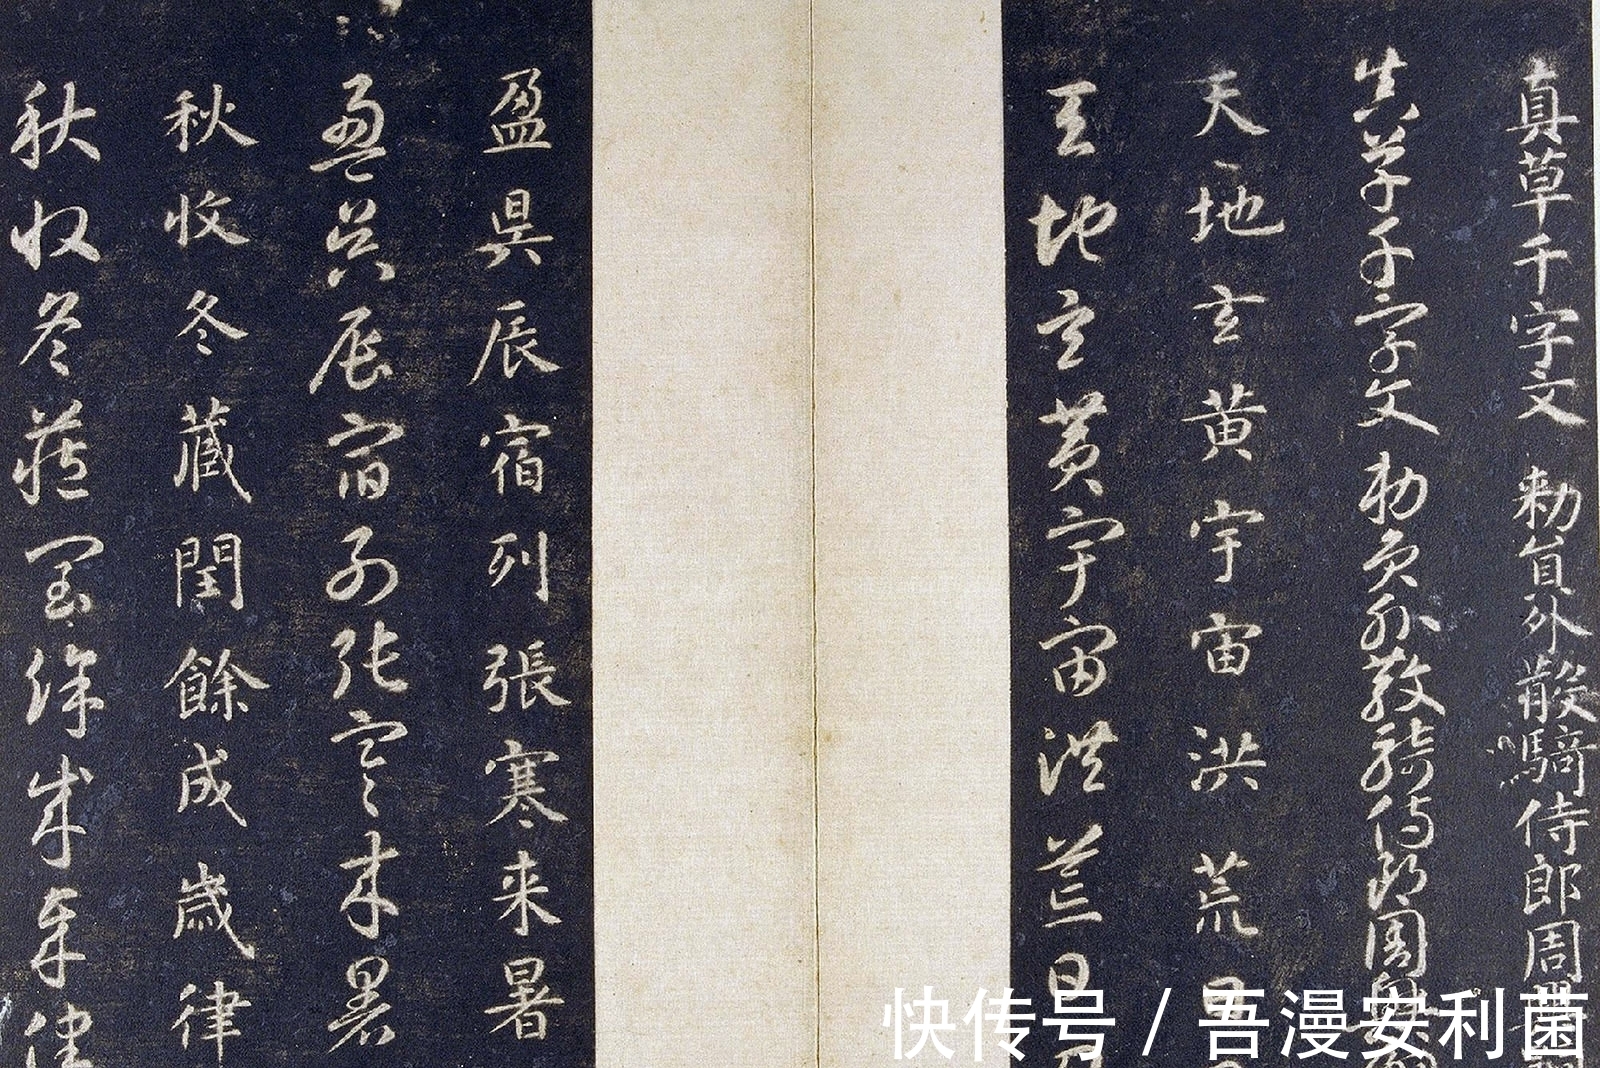 真草千字文 勅員外散騎侍郎周
真草千字文 勅員外散騎侍郎周
天地玄黄宇宙洪荒日
天地玄黄宇宙洪荒日
盈昃辰宿列張寒来暑
盈昃辰宿列張寒来暑
秋收冬藏閏餘成歲律
秋收冬藏閏餘成歲律
快传号 / 吾漫安利菌